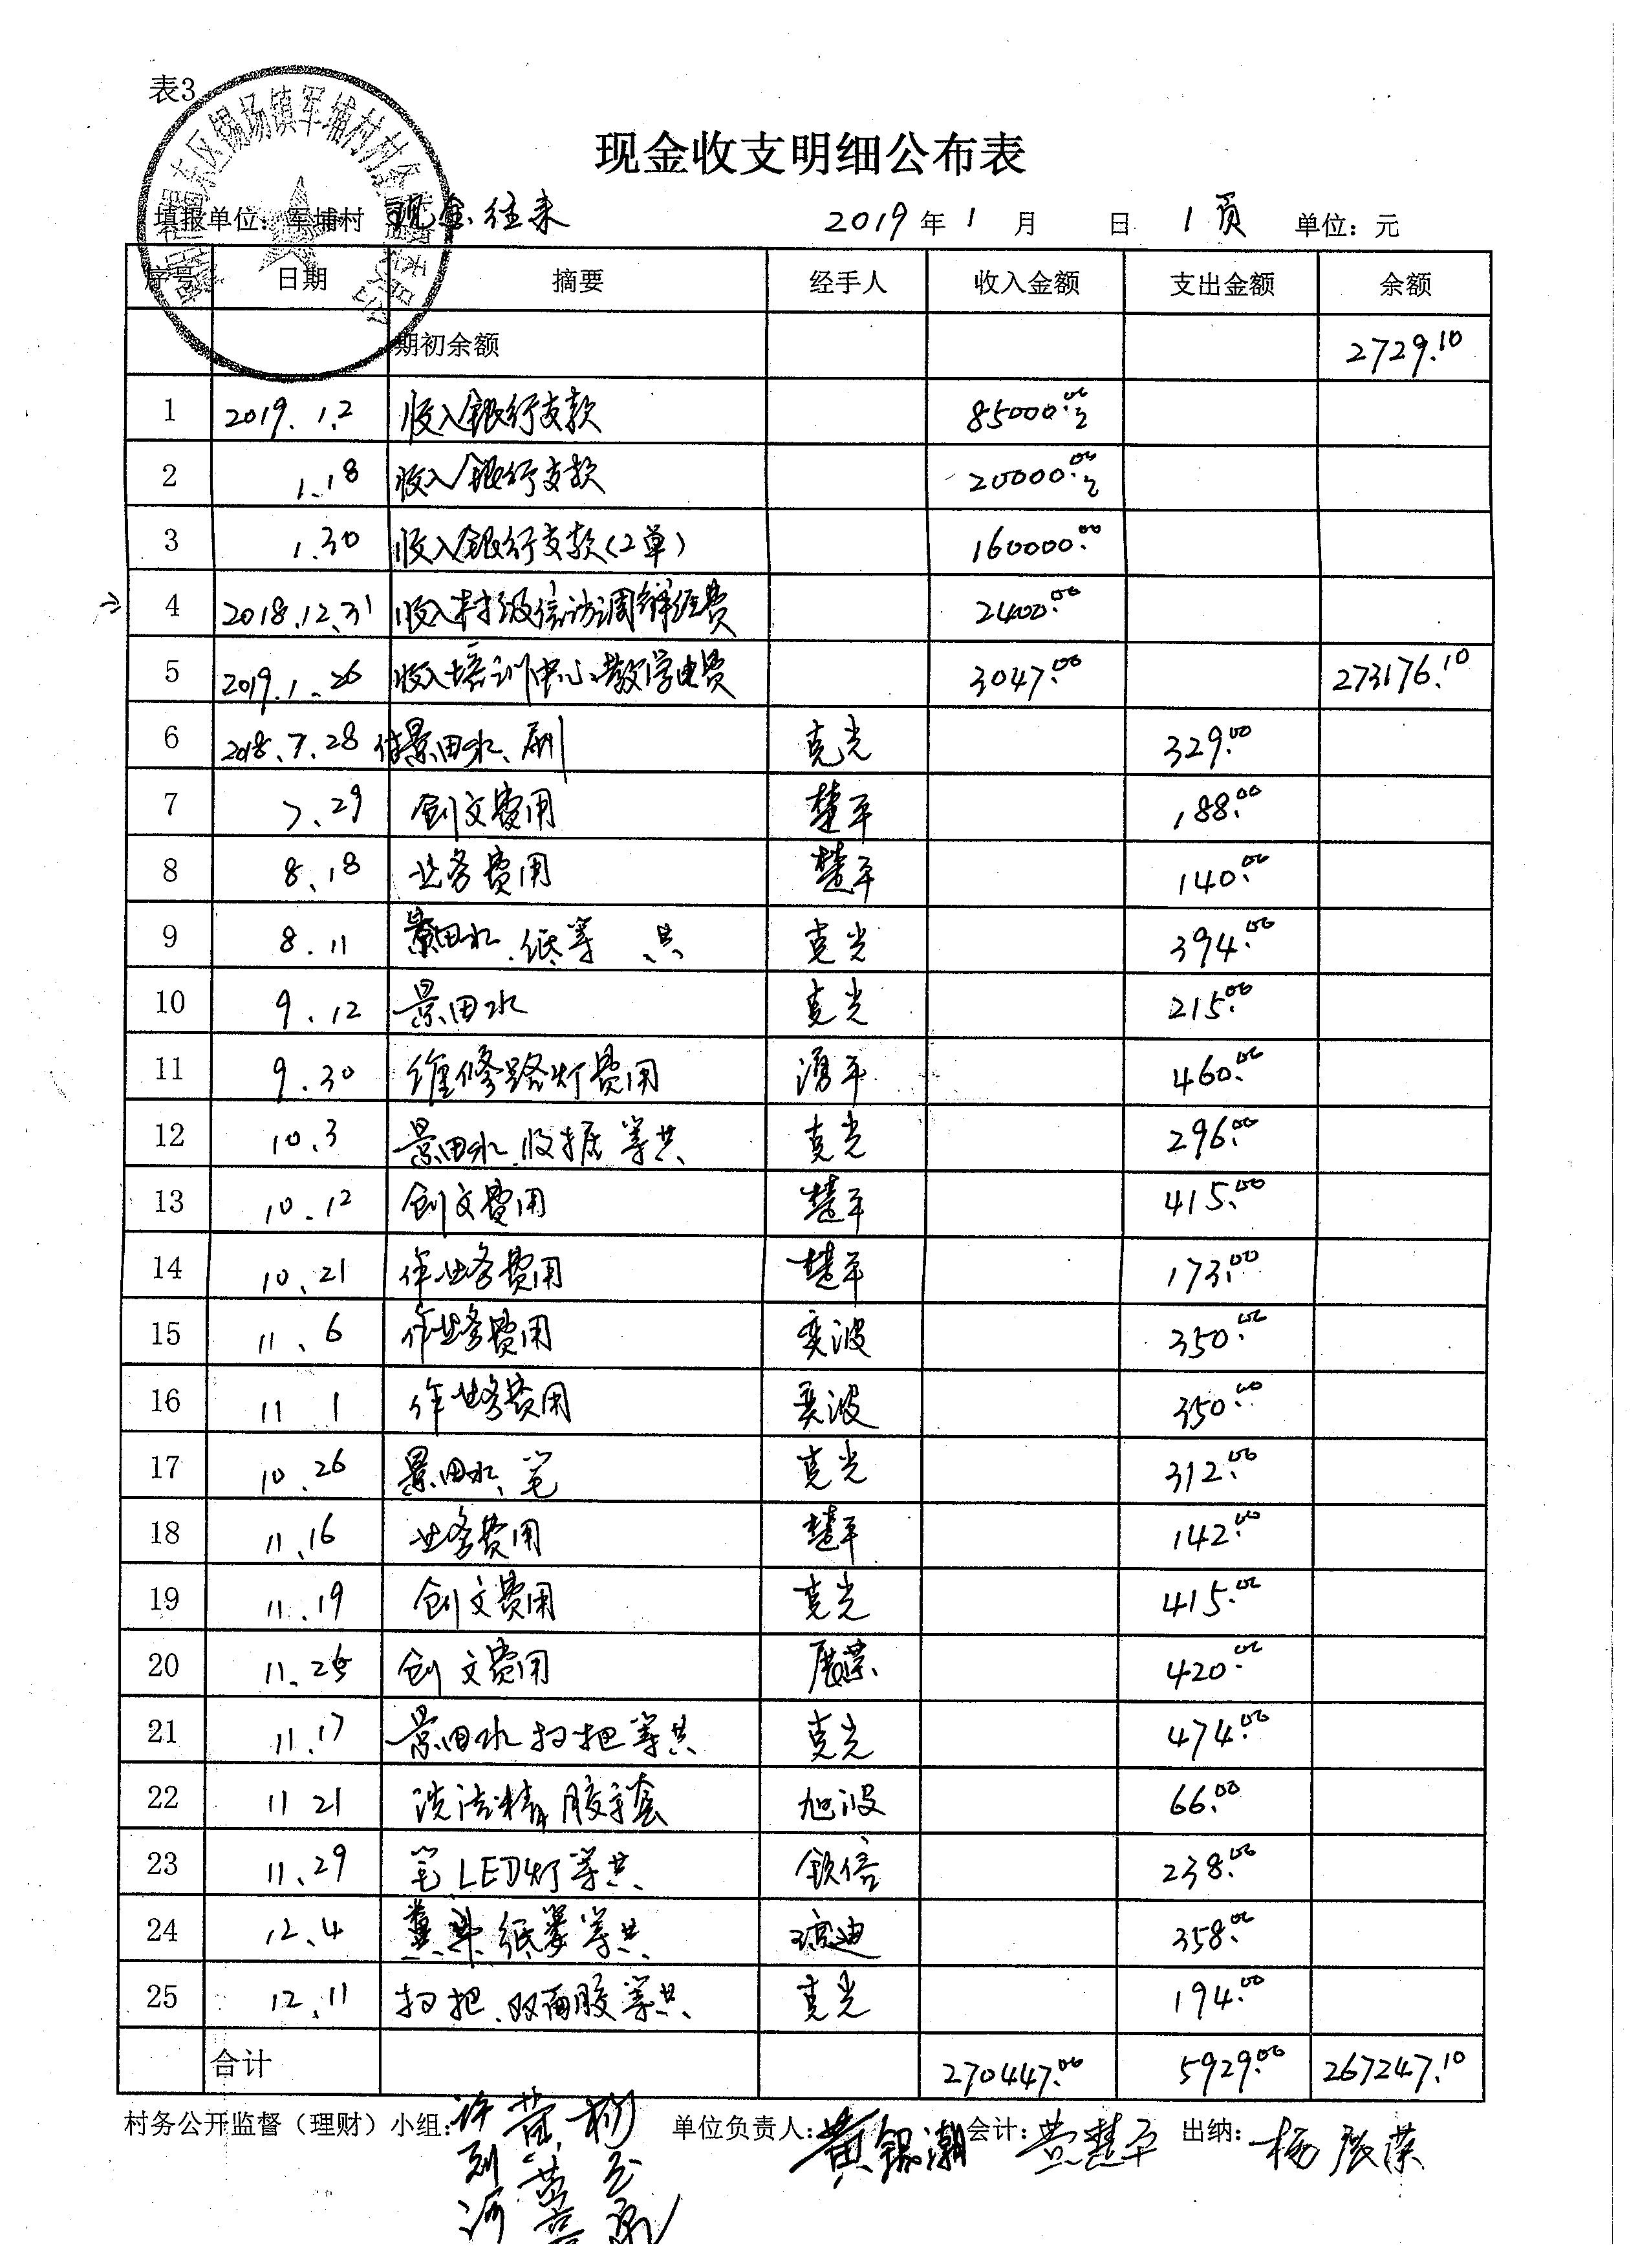 表3
现金收支明细公布表
填报单位：军埔村 现金往来 2019年1月 日 1页 单位：元
序号 日期 摘要 经手人 收入金额 支出金额 余额
期初余额 2729.10
1 2019.1.2 收入银行支款 85000.00
2 1.18 收入银行支款 20000.00
3 1.30 收入银行支款(2单) 160000.00
4 2018.12.31 收入村级信访调解经费 2400.00
5 2019.1.26 收入培训中心教学电费 3047.00 273176.10
6 2018.7.28 付景田水、刷 克光 329.00
7 7.29 创文费用 楚平 188.00
8 8.18 业务费用 楚平 140.00
9 8.11 景田水.纸等 共 克光 394.00
10 9.12 景田水 克光 215.00
11 9.30 维修路灯费用 湧平 460.00
12 10.3 景田水.收据等共 克光 296.00
13 10.12 创文费用 楚平 415.00
14 10.21 作业务费用 楚平 173.00
15 11.6 作业务费用 奕波 350.00
16 11 1 作业务费用 奕波 350.00
17 10.26 景田水、笔 克光 312.00
18 11.16 业务费用 楚平 142.00
19 11.19 创文费用 克光 415.00
20 11.25 创文费用 420.00
21 11.17 景田水扫把等共 克光 474.00
22 11 21 洗洁精胶手套 旭波 66.00
23 11.29 笔LED灯等共 钦信 238.00
24 12.4 纸篓等共 358.00
25 12.11 扫把、双面胶等共 克光 194.00
合计 270447.00 5929.00 267247.10
村务公开监督（理财）小组： 单位负责人：黄锡潮 会计：黄楚平 出纳：杨